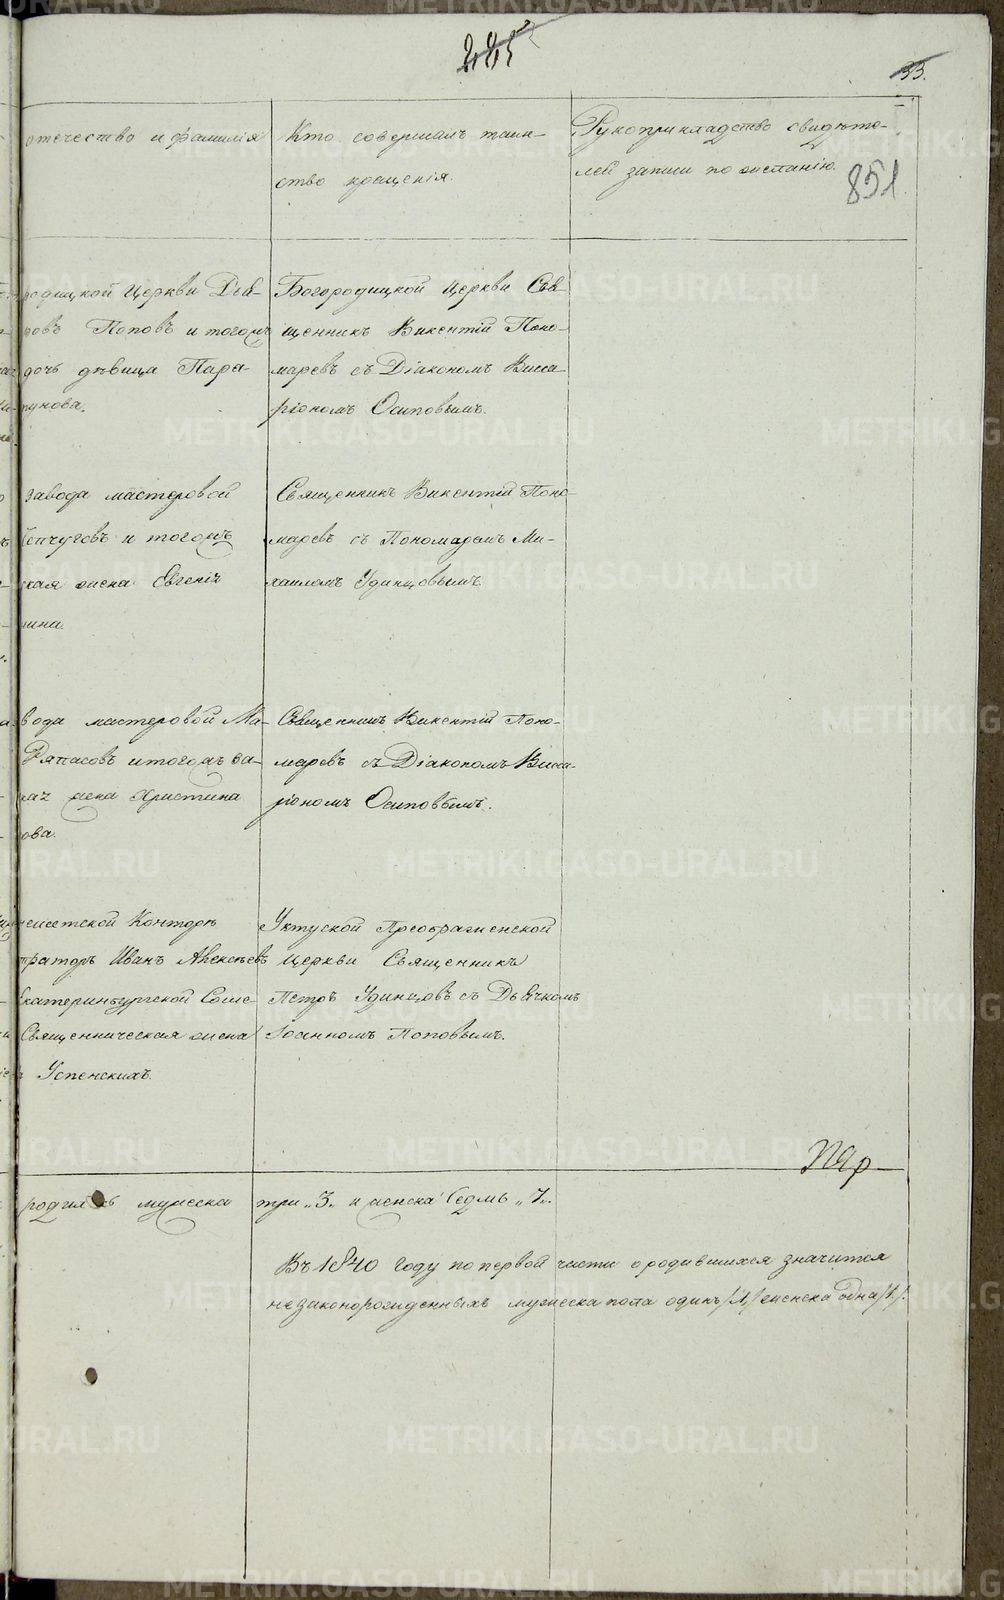 33.
851
отечество и фамилія
Кто совершалъ таин-
ство крещенія.
Рукоприкладство свидѣте-
лей записи по желанію.
родицкой Церкви Дья-
Поповъ и тогожъ
дочь дѣвица Пара-
Богородицкой Церкви Свя-
щенникъ Викентій Поно-
маревъ съ Діакономъ Висса-
ріономъ Осиповымъ.
завода мастеровой
и тогожъ
жена Евгенія
Священникъ Викентій Поно-
маревъ съ Пономаремъ Ми-
хаиломъ Удинцовымъ
вода мастеровой Ма-
Ряпасовъ и тогожъ за-
жена Христина
ова.
Священникъ Викентій Поно-
маревъ съ Діакономъ Висса-
ріономъ Осиповымъ.
Конторы
траторъ Иванъ Алексѣевъ
Екатеринбургской
Священническая жена
Успенскихъ.
Уктуской Преображенской
Церкви Священникъ
Петръ Удинцовъ съ Дьячкомъ
Іоанномъ Поповымъ.
родилось мужеска три „3„ и женска седмь „7„.
Въ 1840 году по первой части о родившихся значится
незаконорожденныхъ мужеска пола одинъ /1/ женска одна /1/.
METRIKI.GASO-URAL.RU